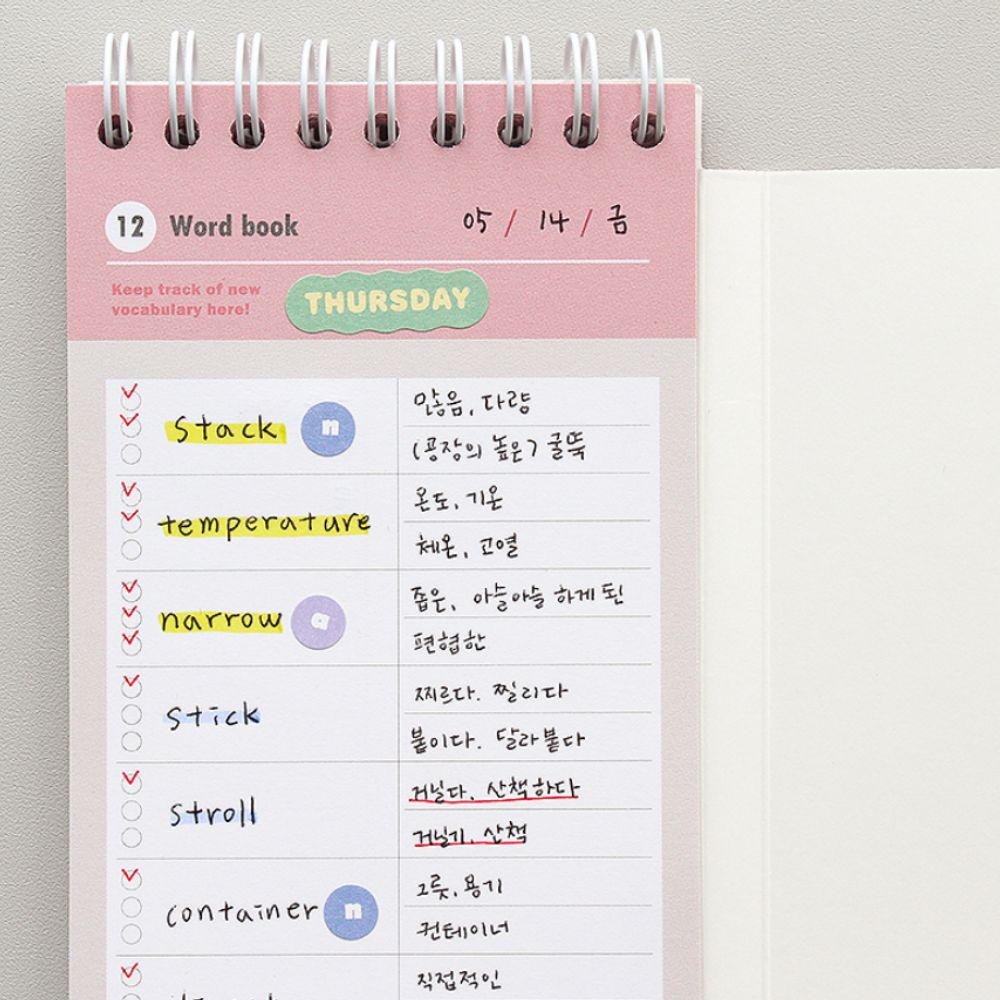 12 Word book 05 / 14 / 금
Keep track of new
vocabulary here!
THURSDAY
stack n
많음, 다량
(공장의 높은) 굴뚝
temperature
온도, 기온
체온, 고열
narrow a
좁은, 아슬아슬 하게 된
편협한
stick
찌르다. 찔리다
붙이다. 달라붙다
stroll
거닐다. 산책하다
거닐기. 산책
container n
그릇, 용기
컨테이너
직접적인